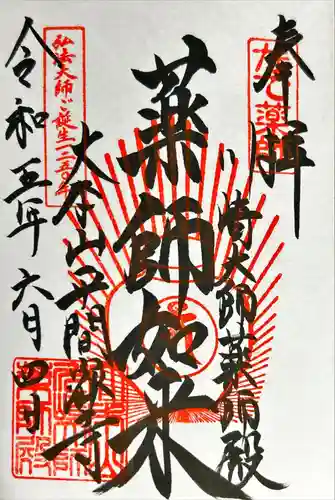 奉拝
なで薬師
川崎大師薬師殿
薬師如来
大本山平間寺
弘法大師ご誕生一二五〇年
令和五年六月四日